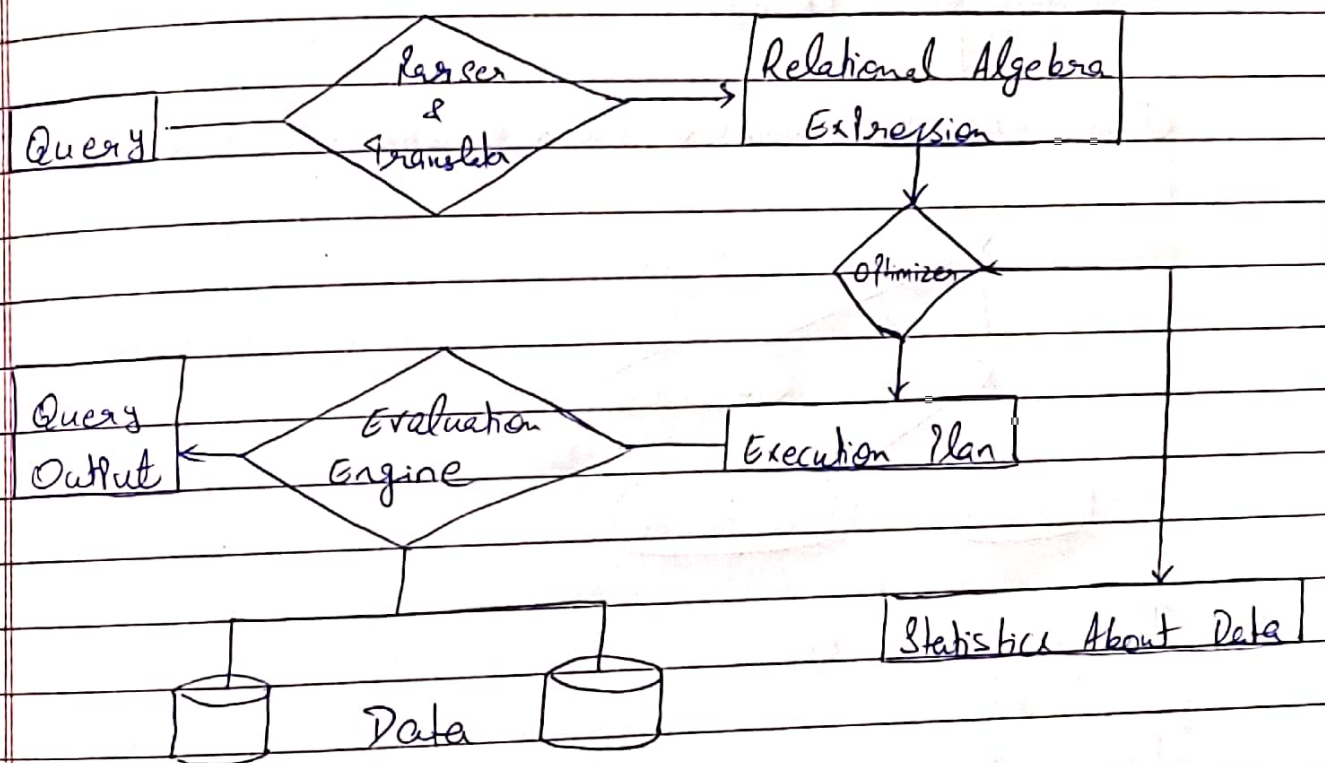 Query
Parser
&
Translator
Relational Algebra
Expression
Optimizer
Execution Plan
Evaluation
Engine
Query
Output
Statistics About Data
Data